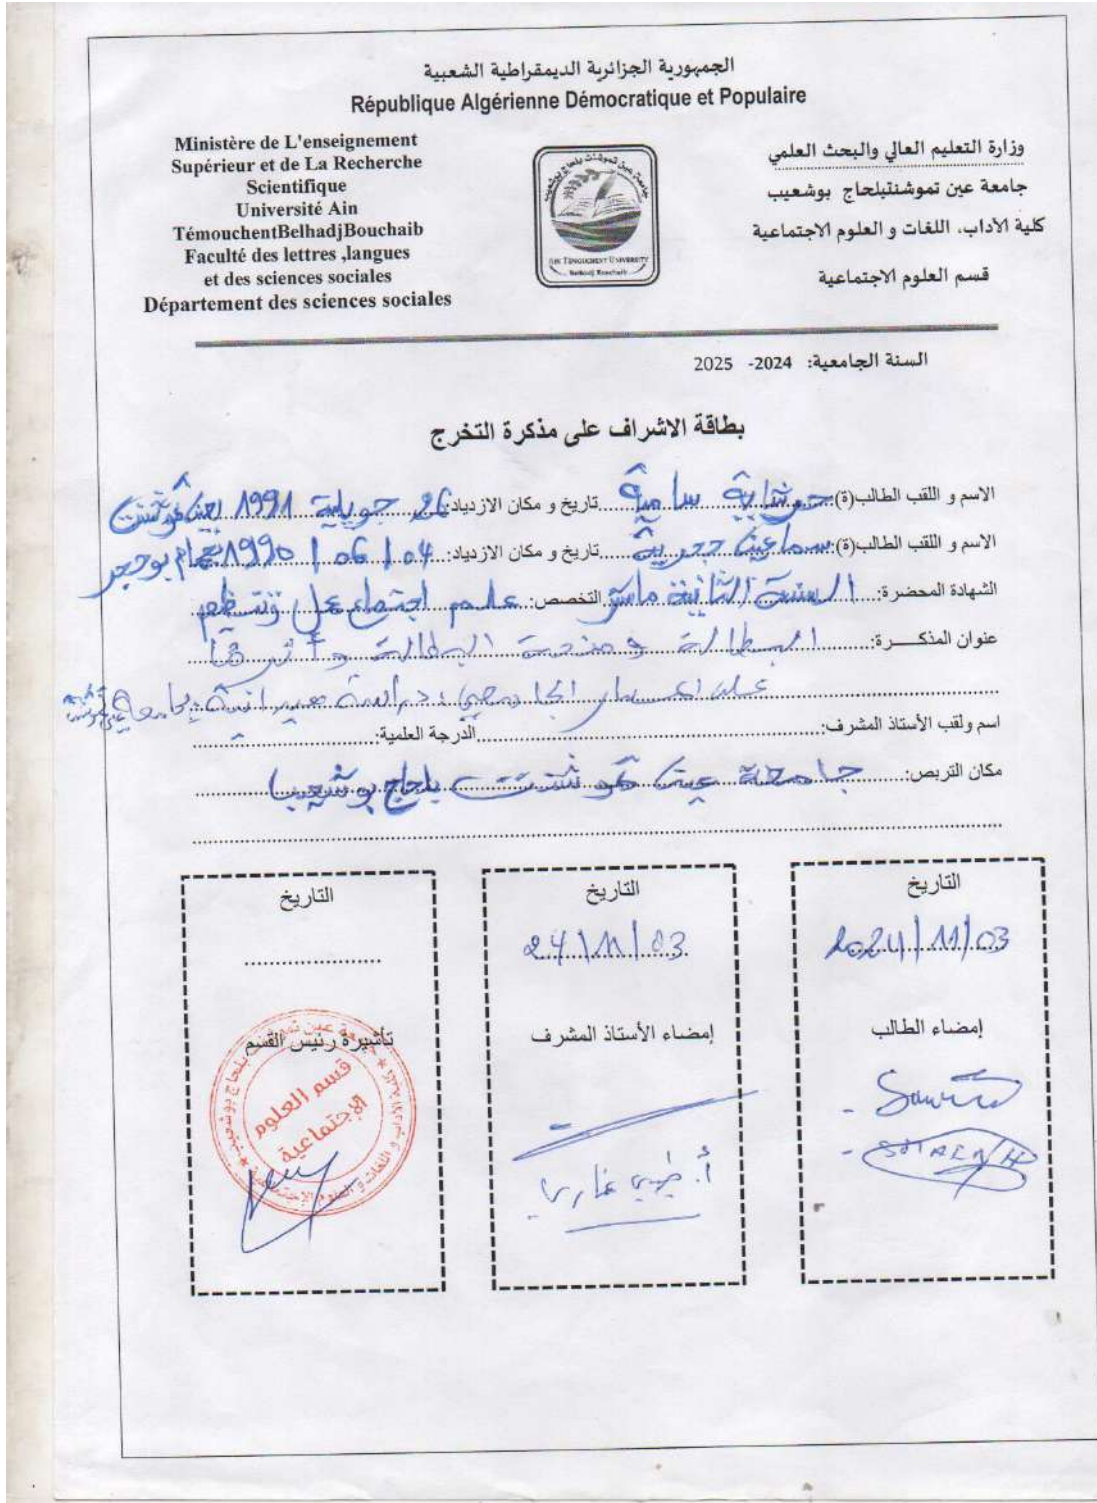 الجمهورية الجزائرية الديمقراطية الشعبية
République Algérienne Démocratique et Populaire
Ministère de L'enseignement
Supérieur et de La Recherche
Scientifique
Université Ain
TémouchentBelhadjBouchaib
Faculté des lettres ,langues
et des sciences sociales
Département des sciences sociales
AIN TEMOUCHENT UNIVERSITY
Belhadj Bouchaib
وزارة التعليم العالي والبحث العلمي
جامعة عين تموشنتبلحاج بوشعيب
كلية الآداب، اللغات و العلوم الاجتماعية
قسم العلوم الاجتماعية
السنة الجامعية: 2024- 2025
بطاقة الاشراف على مذكرة التخرج
الاسم و اللقب الطالب(ة): سامية تاريخ و مكان الازدياد: 26 جويلية 1991 بعين تموشنت
الاسم و اللقب الطالب(ة): سماعين تاريخ و مكان الازدياد: 04 / 06 / 1990 بحمام بوحجر
الشهادة المحضرة: السنة الثانية ماستر التخصص: علم اجتماع عمل وتنظيم
عنوان المذكـــرة: البطالة و منحة البطالة وأثرها
على المسار الجامعي، دراسة ميدانية بجامعة عين تموشنت
اسم ولقب الأستاذ المشرف: الدرجة العلمية:
مكان التربص: جامعة عين تموشنت بلحاج بوشعيب
التاريخ
2024/11/03
إمضاء الطالب
التاريخ
24/11/03
إمضاء الأستاذ المشرف
التاريخ
تأشيرة رئيس القسم
قسم العلوم
الإجتماعية